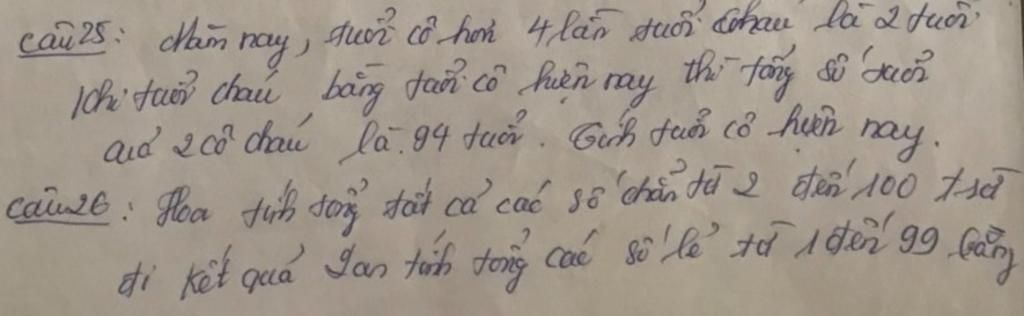 Câu 25: Năm nay, tuổi cô hơn 4 lần tuổi cháu là 2 tuổi
khi tuổi cháu bằng tuổi cô hiện nay thì tổng số tuổi
của 2 cô cháu là 94 tuổi. Tính tuổi cô hiện nay.
Câu 26: Hoa tính tổng tất cả các số chẵn từ 2 đến 100 trừ
đi kết quả Lan tính tổng các số lẻ từ 1 đến 99 bằng